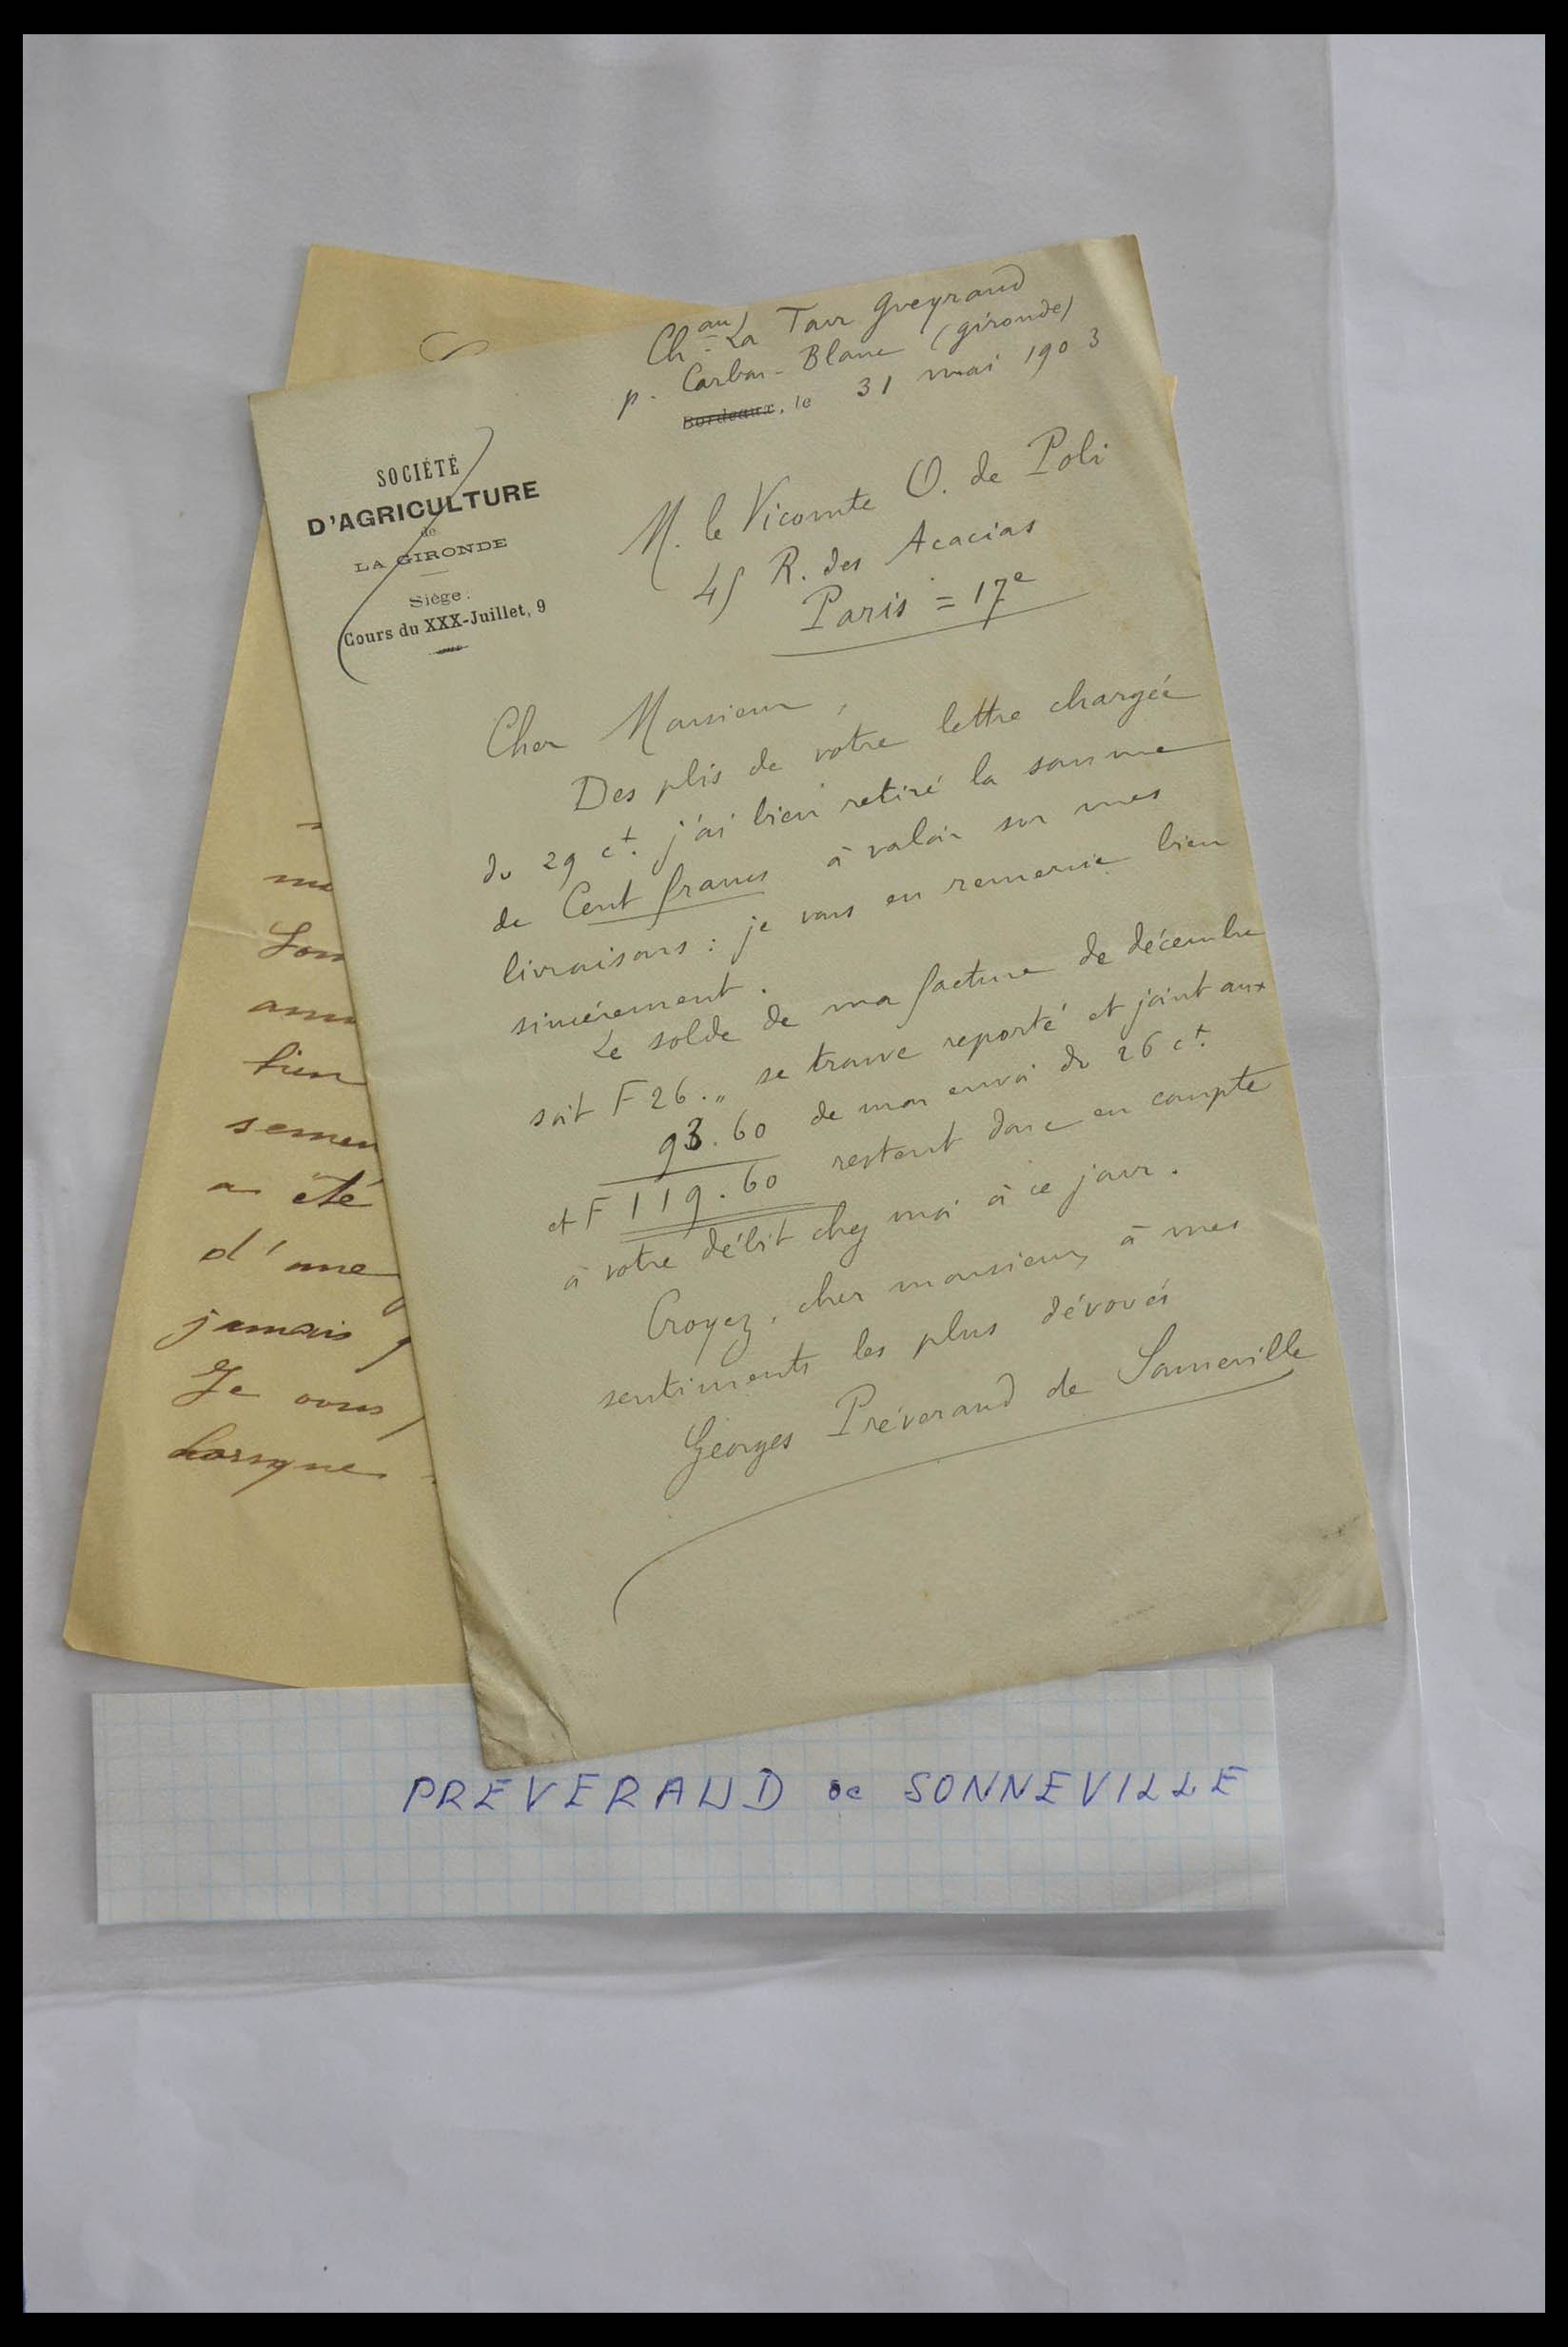 Chau La Tour Gueyraud
p. Carbon-Blanc (Gironde)
Bordeaux, le 31 mai 1903
SOCIÉTÉ
D'AGRICULTURE
de
LA GIRONDE
Siège :
Cours du XXX-Juillet, 9
M. le Vicomte O. de Poli
45 R. des Acacias
Paris = 17e
Cher Monsieur,
Des plis de votre lettre chargée
du 29 ct. j'ai bien retiré la somme
de Cent francs à valoir sur mes
livraisons : je vous en remercie bien
sincérement.
Le solde de ma facture de décembre
soit F 26.„ se trouve reporté et joint aux
93.60 de mon envoi du 26 ct.
et F 119.60 restent donc en compte
à votre débit chez moi à ce jour.
Croyez, cher monsieur, à mes
sentiments les plus dévoués
Georges Préveraud de Sonneville
bien
semen
a été
d'une
jamais
Je vous
Lorsque
PREVERAUD de SONNEVILLE